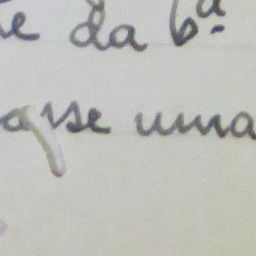 e da 6ª
asse uma